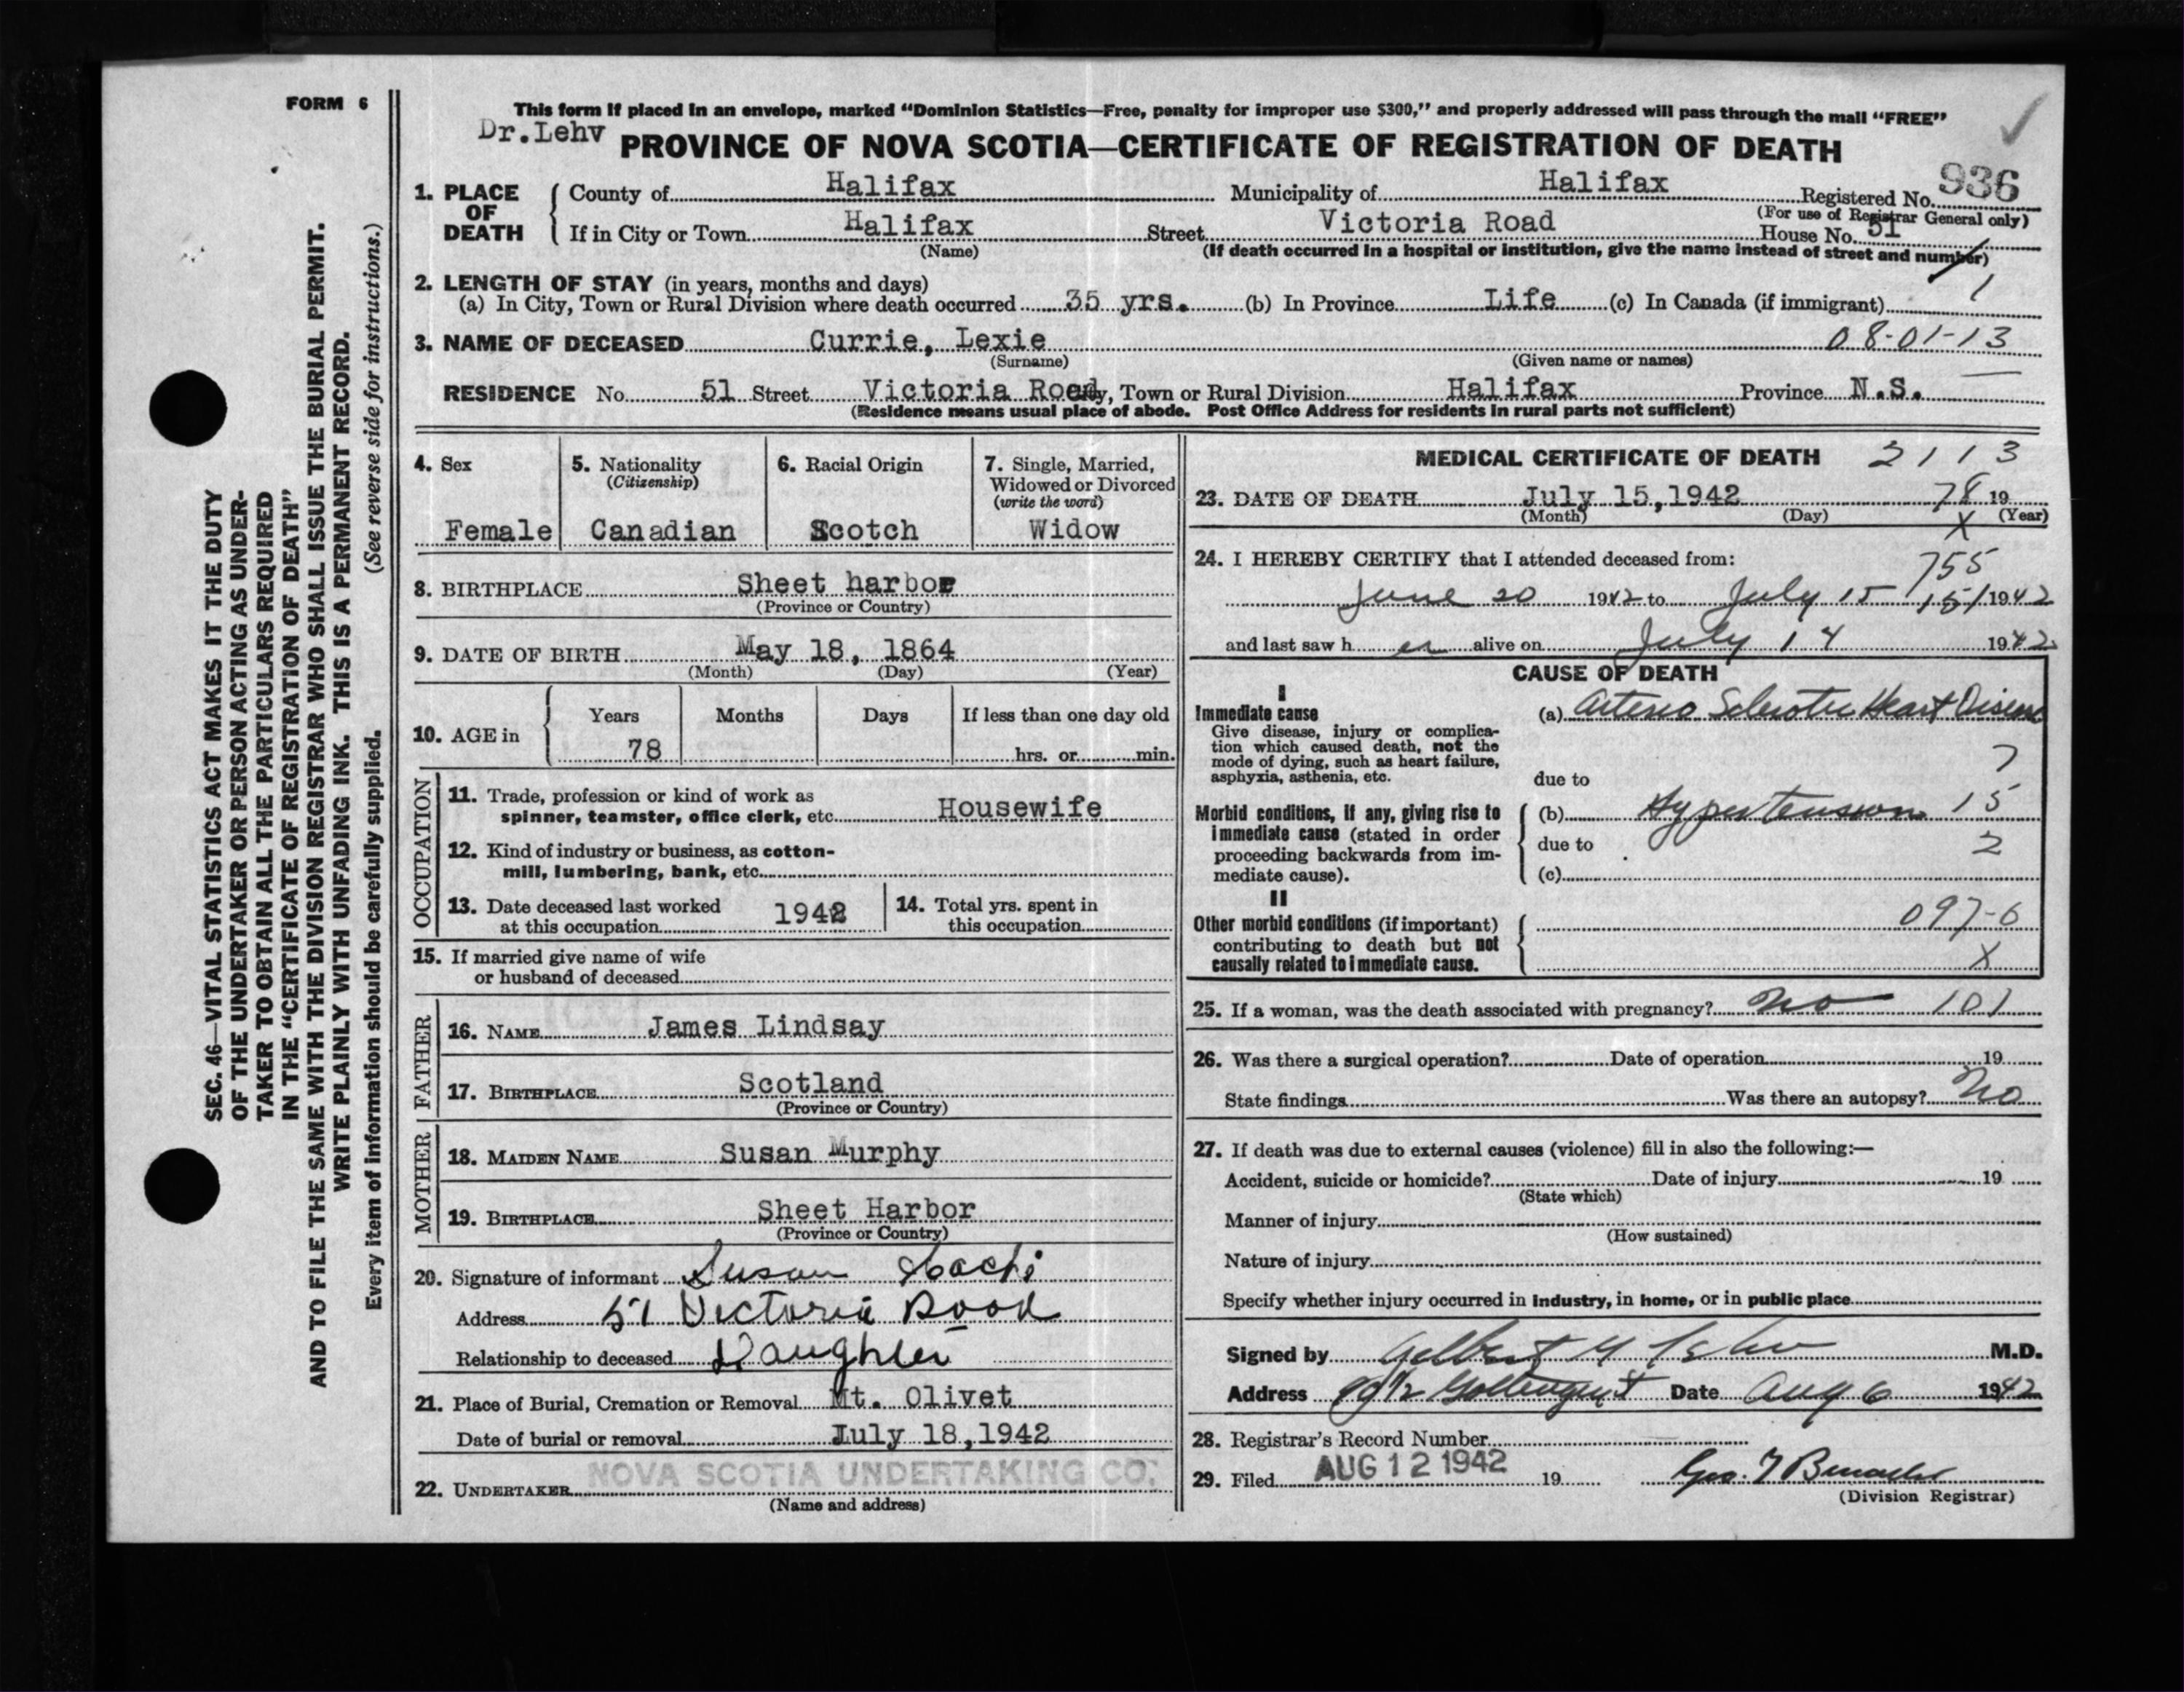 FORM 6
SEC. 46—VITAL STATISTICS ACT MAKES IT THE DUTY
OF THE UNDERTAKER OR PERSON ACTING AS UNDER-
TAKER TO OBTAIN ALL THE PARTICULARS REQUIRED
IN THE "CERTIFICATE OF REGISTRATION OF DEATH"
AND TO FILE THE SAME WITH THE DIVISION REGISTRAR WHO SHALL ISSUE THE BURIAL PERMIT.
WRITE PLAINLY WITH UNFADING INK. THIS IS A PERMANENT RECORD.
Every item of information should be carefully supplied. (See reverse side for instructions.)
This form if placed in an envelope, marked "Dominion Statistics—Free, penalty for improper use $300," and properly addressed will pass through the mail "FREE"
Dr.Lehv PROVINCE OF NOVA SCOTIA—CERTIFICATE OF REGISTRATION OF DEATH
1. PLACE OF DEATH County of Halifax Municipality of Halifax Registered No. 936
(For use of Registrar General only)
If in City or Town Halifax Street Victoria Road House No. 51
(Name) (If death occurred in a hospital or institution, give the name instead of street and number)
2. LENGTH OF STAY (in years, months and days)
(a) In City, Town or Rural Division where death occurred 35 yrs. (b) In Province Life (c) In Canada (if immigrant) 1
3. NAME OF DECEASED Currie, Lexie 08-01-13
(Surname) (Given name or names)
RESIDENCE No. 51 Street Victoria Road City, Town or Rural Division Halifax Province N.S.
(Residence means usual place of abode. Post Office Address for residents in rural parts not sufficient)
4. Sex Female
5. Nationality (Citizenship) Canadian
6. Racial Origin Scotch
7. Single, Married, Widowed or Divorced (write the word) Widow
8. BIRTHPLACE Sheet harbor
(Province or Country)
9. DATE OF BIRTH May 18, 1864
(Month) (Day) (Year)
10. AGE in Years Months Days If less than one day old
78 hrs. or min.
OCCUPATION
11. Trade, profession or kind of work as
spinner, teamster, office clerk, etc. Housewife
12. Kind of industry or business, as cotton-
mill, lumbering, bank, etc.
13. Date deceased last worked
at this occupation 1942
14. Total yrs. spent in
this occupation
15. If married give name of wife
or husband of deceased
FATHER
16. NAME James Lindsay
17. BIRTHPLACE Scotland
(Province or Country)
MOTHER
18. MAIDEN NAME Susan Murphy
19. BIRTHPLACE Sheet Harbor
(Province or Country)
20. Signature of informant Susan
Address 51 Victoria Road
Relationship to deceased Daughter
21. Place of Burial, Cremation or Removal Mt. Olivet
Date of burial or removal July 18,1942
22. UNDERTAKER NOVA SCOTIA UNDERTAKING CO.
(Name and address)
MEDICAL CERTIFICATE OF DEATH 2113
23. DATE OF DEATH July 15,1942 78 19
(Month) (Day) X (Year)
24. I HEREBY CERTIFY that I attended deceased from: 755
June 20 1942 to July 15 151 1942
and last saw h er alive on July 14 1942
CAUSE OF DEATH
I
Immediate cause (a) Arterio Sclerotic Heart Disease
Give disease, injury or complica-
tion which caused death, not the
mode of dying, such as heart failure,
asphyxia, asthenia, etc. due to 7
Morbid conditions, if any, giving rise to (b) Hypertension 15
immediate cause (stated in order
proceeding backwards from im- due to 2
mediate cause). (c)
II
Other morbid conditions (if important) 097-6
contributing to death but not
causally related to immediate cause. X
25. If a woman, was the death associated with pregnancy? No 101
26. Was there a surgical operation? Date of operation 19
State findings Was there an autopsy? No
27. If death was due to external causes (violence) fill in also the following:—
Accident, suicide or homicide? Date of injury 19
(State which)
Manner of injury
(How sustained)
Nature of injury
Specify whether injury occurred in industry, in home, or in public place
Signed by Gilbert M.D.
Address Date Aug 6 1942
28. Registrar's Record Number
29. Filed AUG 12 1942 19 Geo.
(Division Registrar)